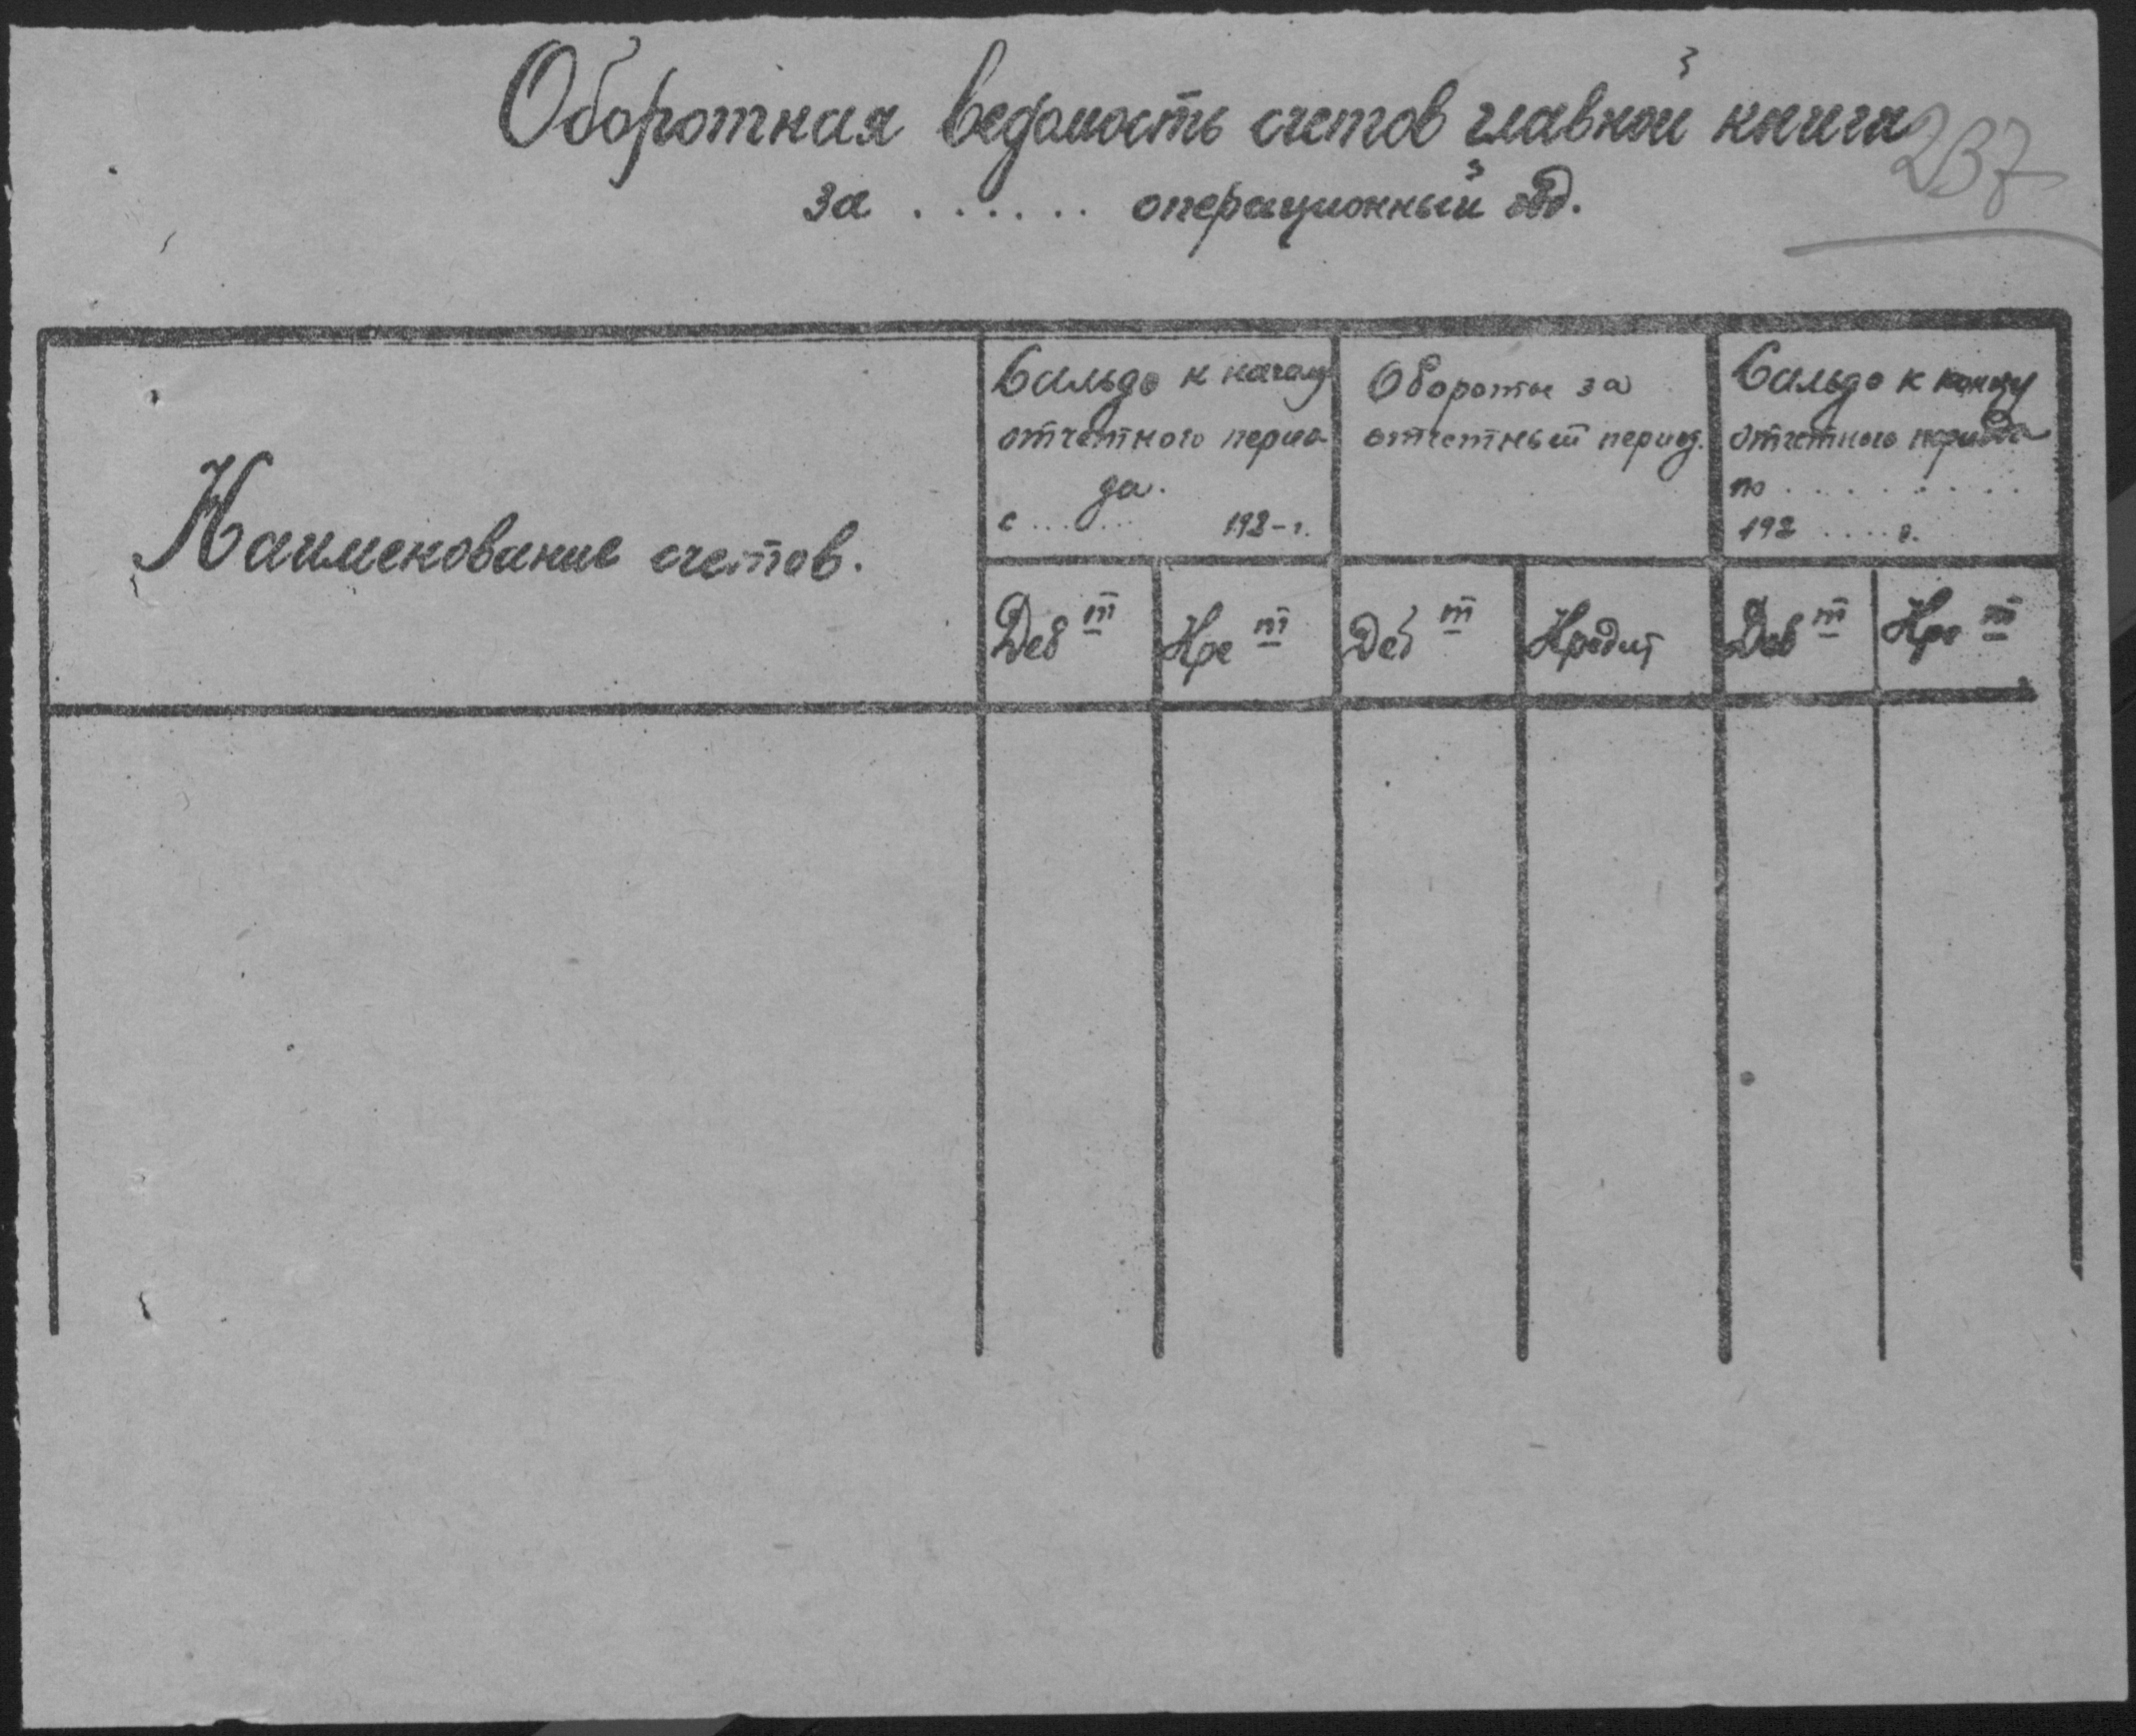 Оборотная ведомость счетов главной книги
237
за . . . . . . операционный год.
Наименование счетов.
Сальдо к началу
отчетного перио-
да.
с ...... 192-г.
Обороты за
отчетный период.
Сальдо к концу
отчетного периода
по . . . . . . . .
192 .... г.
Деб т
Кре т
Деб т
Кредит
Деб т
Кре т